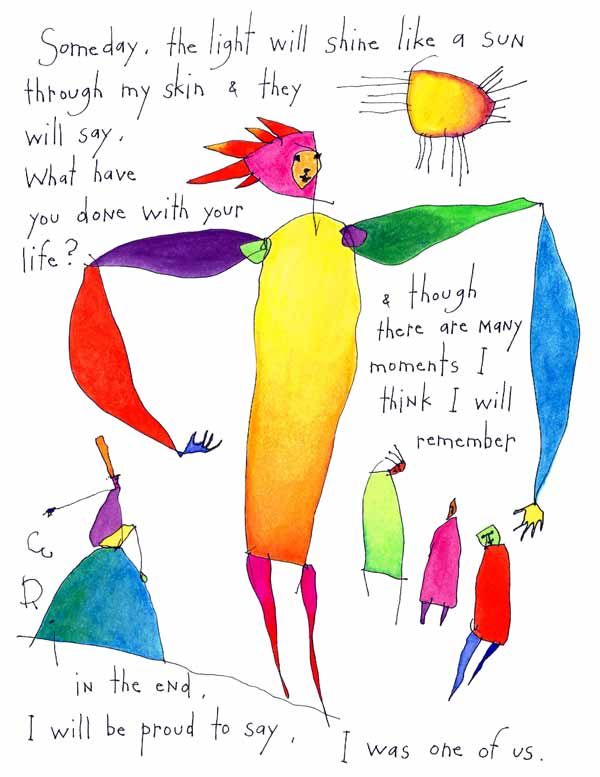 Someday, the light will shine like a sun
through my skin & they
will say,
What have
you done with your
life?
& though
there are many
moments I
think I will
remember
in the end,
I will be proud to say,
I was one of us.